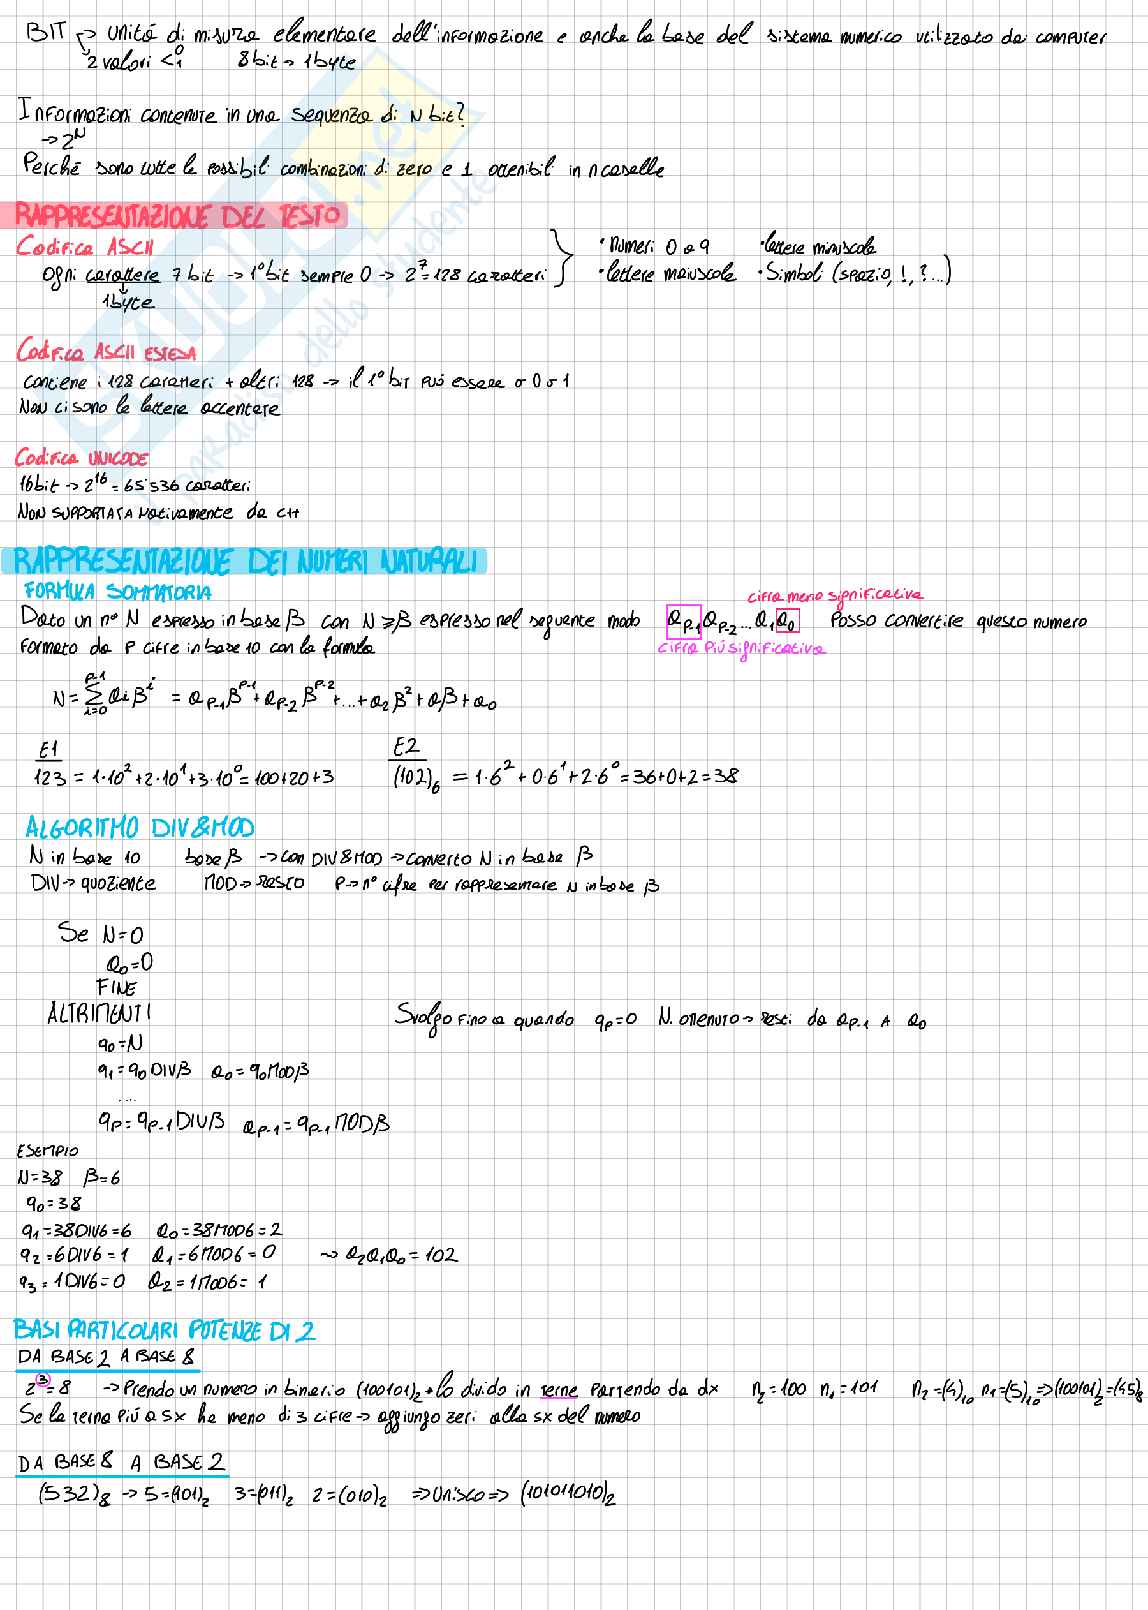 BIT → unità di misura elementare dell'informazione e anche la base del sistema numerico utilizzato dai computer
→ 2 valori < 0 1    8 bit → 1 byte
Informazioni contenute in una sequenza di N bit?
→ 2^N
Perché sono tutte le possibili combinazioni di zero e 1 ottenibili in n caselle
RAPPRESENTAZIONE DEL TESTO
Codifica ASCII
Ogni carattere 7 bit → 1° bit sempre 0 → 2^7 = 128 caratteri } • Numeri 0 a 9 • lettere minuscole
• lettere maiuscole • Simboli (spazio, !, ? ...)
1 byte
Codifica ASCII ESTESA
contiene i 128 caratteri + altri 128 → il 1° bit può essere o 0 o 1
NON ci sono le lettere accentate
Codifica UNICODE
16 bit → 2^16 = 65'536 caratteri
NON SUPPORTATA Nativamente da C++
RAPPRESENTAZIONE DEI NUMERI NATURALI
FORMULA SOMMATORIA
cifra meno significativa
Dato un n° N espresso in base β con N ≥ β espresso nel seguente modo a_{p-1} a_{p-2} ... a_1 a_0 Posso convertire questo numero
cifra più significativa
formato da P cifre in base 10 con la formula
N = Σ_{i=0}^{p-1} a_i β^i = a_{p-1} β^{p-1} + a_{p-2} β^{p-2} + ... + a_2 β^2 + aβ + a_0
E1    E2
123 = 1·10^2 + 2·10^1 + 3·10^0 = 100+20+3    (102)_6 = 1·6^2 + 0·6^1 + 2·6^0 = 36+0+2 = 38
ALGORITMO DIV&MOD
N in base 10    base β → con DIV&MOD → converto N in base β
DIV → quoziente    MOD → resto    P → n° cifre per rappresentare N in base β
Se N=0
a_0=0
FINE
ALTRIMENTI    Svolgo fino a quando q_p=0 N. ottenuto → resti da a_{p-1} A a_0
q_0=N
q_1 = q_0 DIV β    a_0 = q_0 MOD β
....
q_p = q_{p-1} DIV β    a_{p-1} = q_{p-1} MOD β
ESEMPIO
N=38    β=6
q_0=38
q_1=38DIV6=6    a_0=38MOD6=2
q_2=6DIV6=1    a_1=6MOD6=0    → a_2 a_1 a_0 = 102
q_3=1DIV6=0    a_2=1MOD6=1
BASI PARTICOLARI POTENZE DI 2
DA BASE 2 A BASE 8
2^3=8 → Prendo un numero in binario (100101)_2 + lo divido in terne partendo da dx    n_2=100 n_1=101    n_2=(4)_10 n_1=(5)_10 ⇒ (100101)_2=(45)_8
Se la terna più a sx ha meno di 3 cifre → aggiungo zeri alla sx del numero
DA BASE 8 A BASE 2
(532)_8 → 5=(101)_2    3=(011)_2    2=(010)_2    ⇒ Unisco ⇒ (101011010)_2
SKUOLA.net
il paradiso dello studente